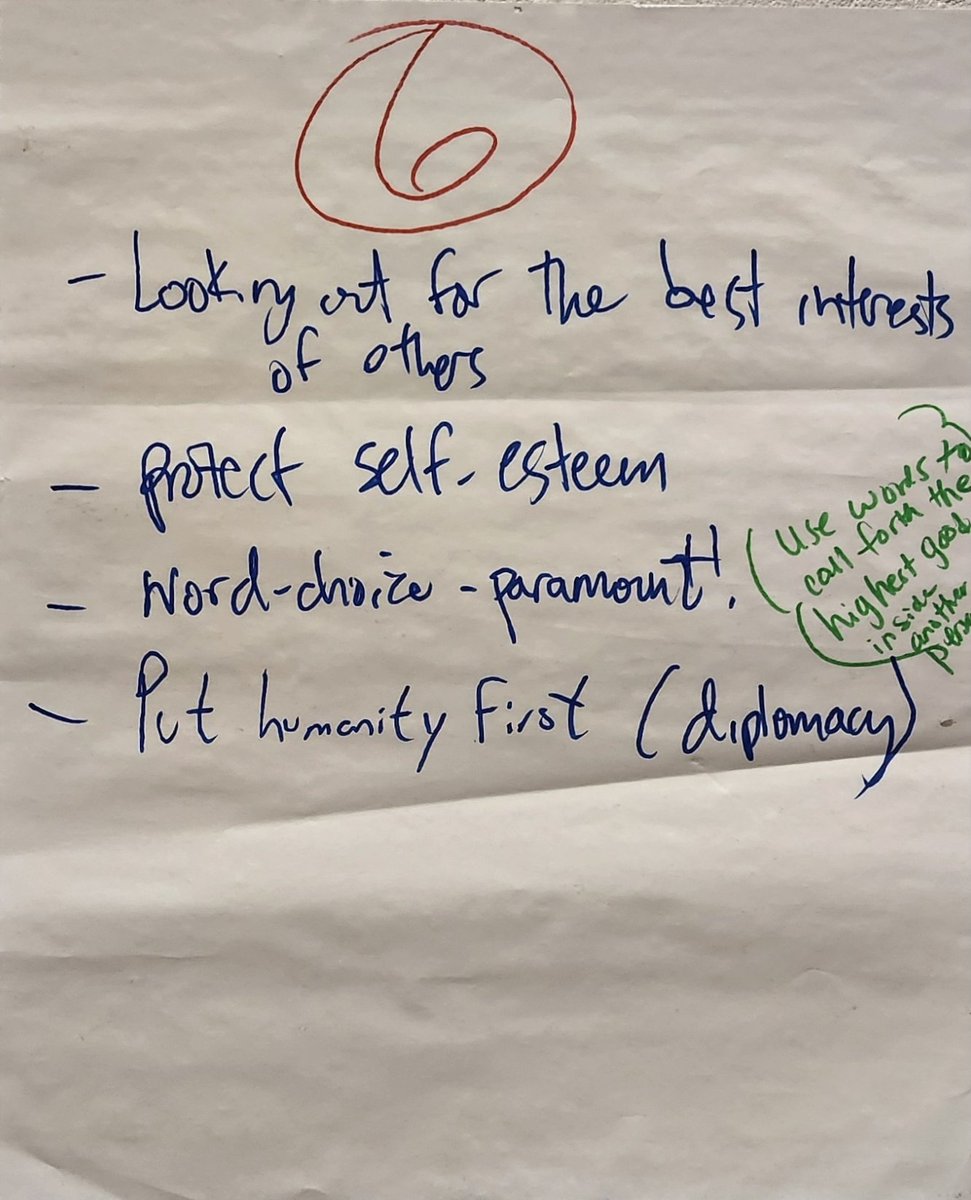 6
- Looking out for the best interests
of others
- protect self-esteem
- Word-choice - paramount!
- Put humanity first (diplomacy)
(use words to
call forth the
highest good
inside
another
person